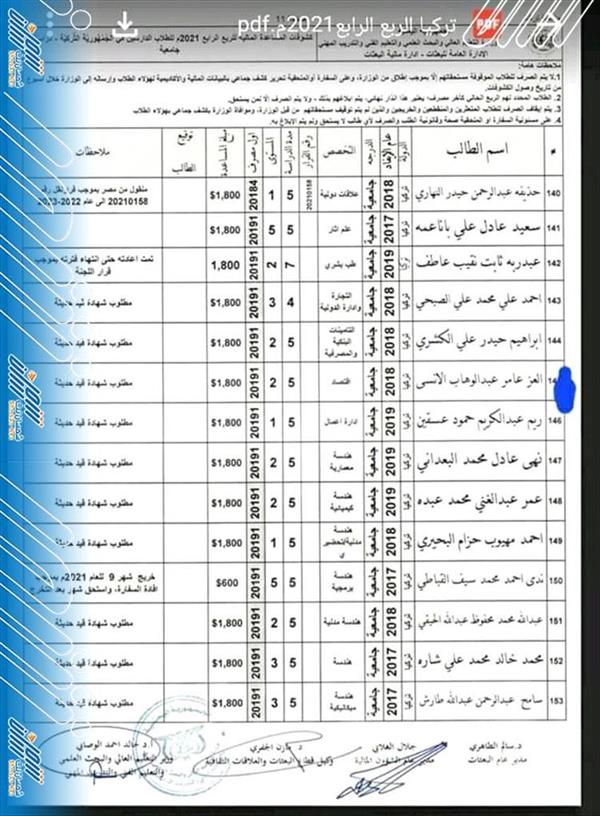 تركيا الربع الرابع2021م.pdf
PDF
وزارة التعليم العالي والبحث العلمي والتعليم الفني والتدريب المهني
الادارة العامة للبعثات - ادارة مالية البعثات
كشوفات المساعدة المالية للربع الرابع 2021م للطلاب الدارسين في الجمهورية التركية
جامعية
ملاحظات عامة:
1. لا يتم الصرف للطلاب الموقوفة مستحقاتهم إلا بموجب إطلاق من الوزارة، وعلى السفارة أو الملحقية تحرير كشف جماعي بالبيانات المالية والأكاديمية لهؤلاء الطلاب وإرساله إلى الوزارة خلال أسبوع
من تاريخ وصول الكشوفات.
# اسم الطالب الدولة عام الإيفاد الدرجة التخصص رقم القرار مدة الدراسة المستوى اول مصرف مبلغ المساعدة توقيع الطالب ملاحظات
140 حذيفه عبدالرحمن حيدر النهاري تركيا 2018 جامعية علاقات دولية 20210158 5 1 20184 $1,800 منقول من مصر بموجب قرار نقل رقم 20210158 الى عام 2022-2023
141 سعيد عادل علي باناعمه تركيا 2017 جامعية علم اثار 5 5 20191 $1,800
142 عبدربه ثابت نقيب عاطف تركيا جامعية طب بشري 7 2 20191 1,800 تمت اعادته حتى انتهاء فترته بموجب قرار اللجنة
143 احمد علي محمد علي الصبحي تركيا 2018 جامعية التجارة وادارة الدولية 4 3 20191 $1,800 مطلوب شهادة قيد حديثة
144 ابراهيم حيدر علي الكشري تركيا 2018 جامعية التأمينات البنكية والمصرفية 5 2 20191 $1,800 مطلوب شهادة قيد حديثة
العز عامر عبدالوهاب الانسى تركيا 2018 جامعية اقتصاد 5 2 20191 $1,800 مطلوب شهادة قيد حديثة
146 ريم عبدالكريم حمود عسقين تركيا 2019 جامعية ادارة اعمال 5 1 20191 $1,800 مطلوب شهادة قيد حديثة
147 نهى عادل محمد البعداني تركيا 2019 جامعية هندسة معمارية 5 2 20191 $1,800 مطلوب شهادة قيد حديثة
148 عمر عبدالغني محمد عبده تركيا 2019 جامعية هندسة كيميائية 5 2 20191 $1,800 مطلوب شهادة قيد حديثة
149 احمد مهيوب حزام البحيري تركيا 2018 جامعية هندسة مدنية/تحضيري 5 1 20191 $1,800 مطلوب شهادة قيد حديثة
150 ندى احمد محمد سيف القباطي تركيا 2017 جامعية هندسة برمجية 5 5 20191 $600 خريج شهر 9 للعام 2021م بموجب افادة السفارة، واستحق شهر بعد التخرج
151 عبدالله محمد محفوظ عبدالله الحيقي تركيا 2018 جامعية هندسة مدنية 5 2 20191 $1,800 مطلوب شهادة قيد حديثة
152 محمد خالد محمد علي شاره تركيا 2017 جامعية هندسة 5 3 20191 $1,800 مطلوب شهادة قيد حديثة
153 سامح عبدالرحمن عبدالله طارش تركيا 2017 جامعية هندسة ميكانيكية 5 3 20191 $1,800 مطلوب شهادة قيد حديثة
د.سالم الظاهري جلال الغلابي د مازن الجفري أ.د خالد احمد الوصابي
مدير عام البعثات مدير عام الشئون المالية وكيل قطاع البعثات والعلاقات الثقافية وزير التعليم العالي والبحث العلمي
والتعليم الفني والتدريب المهني